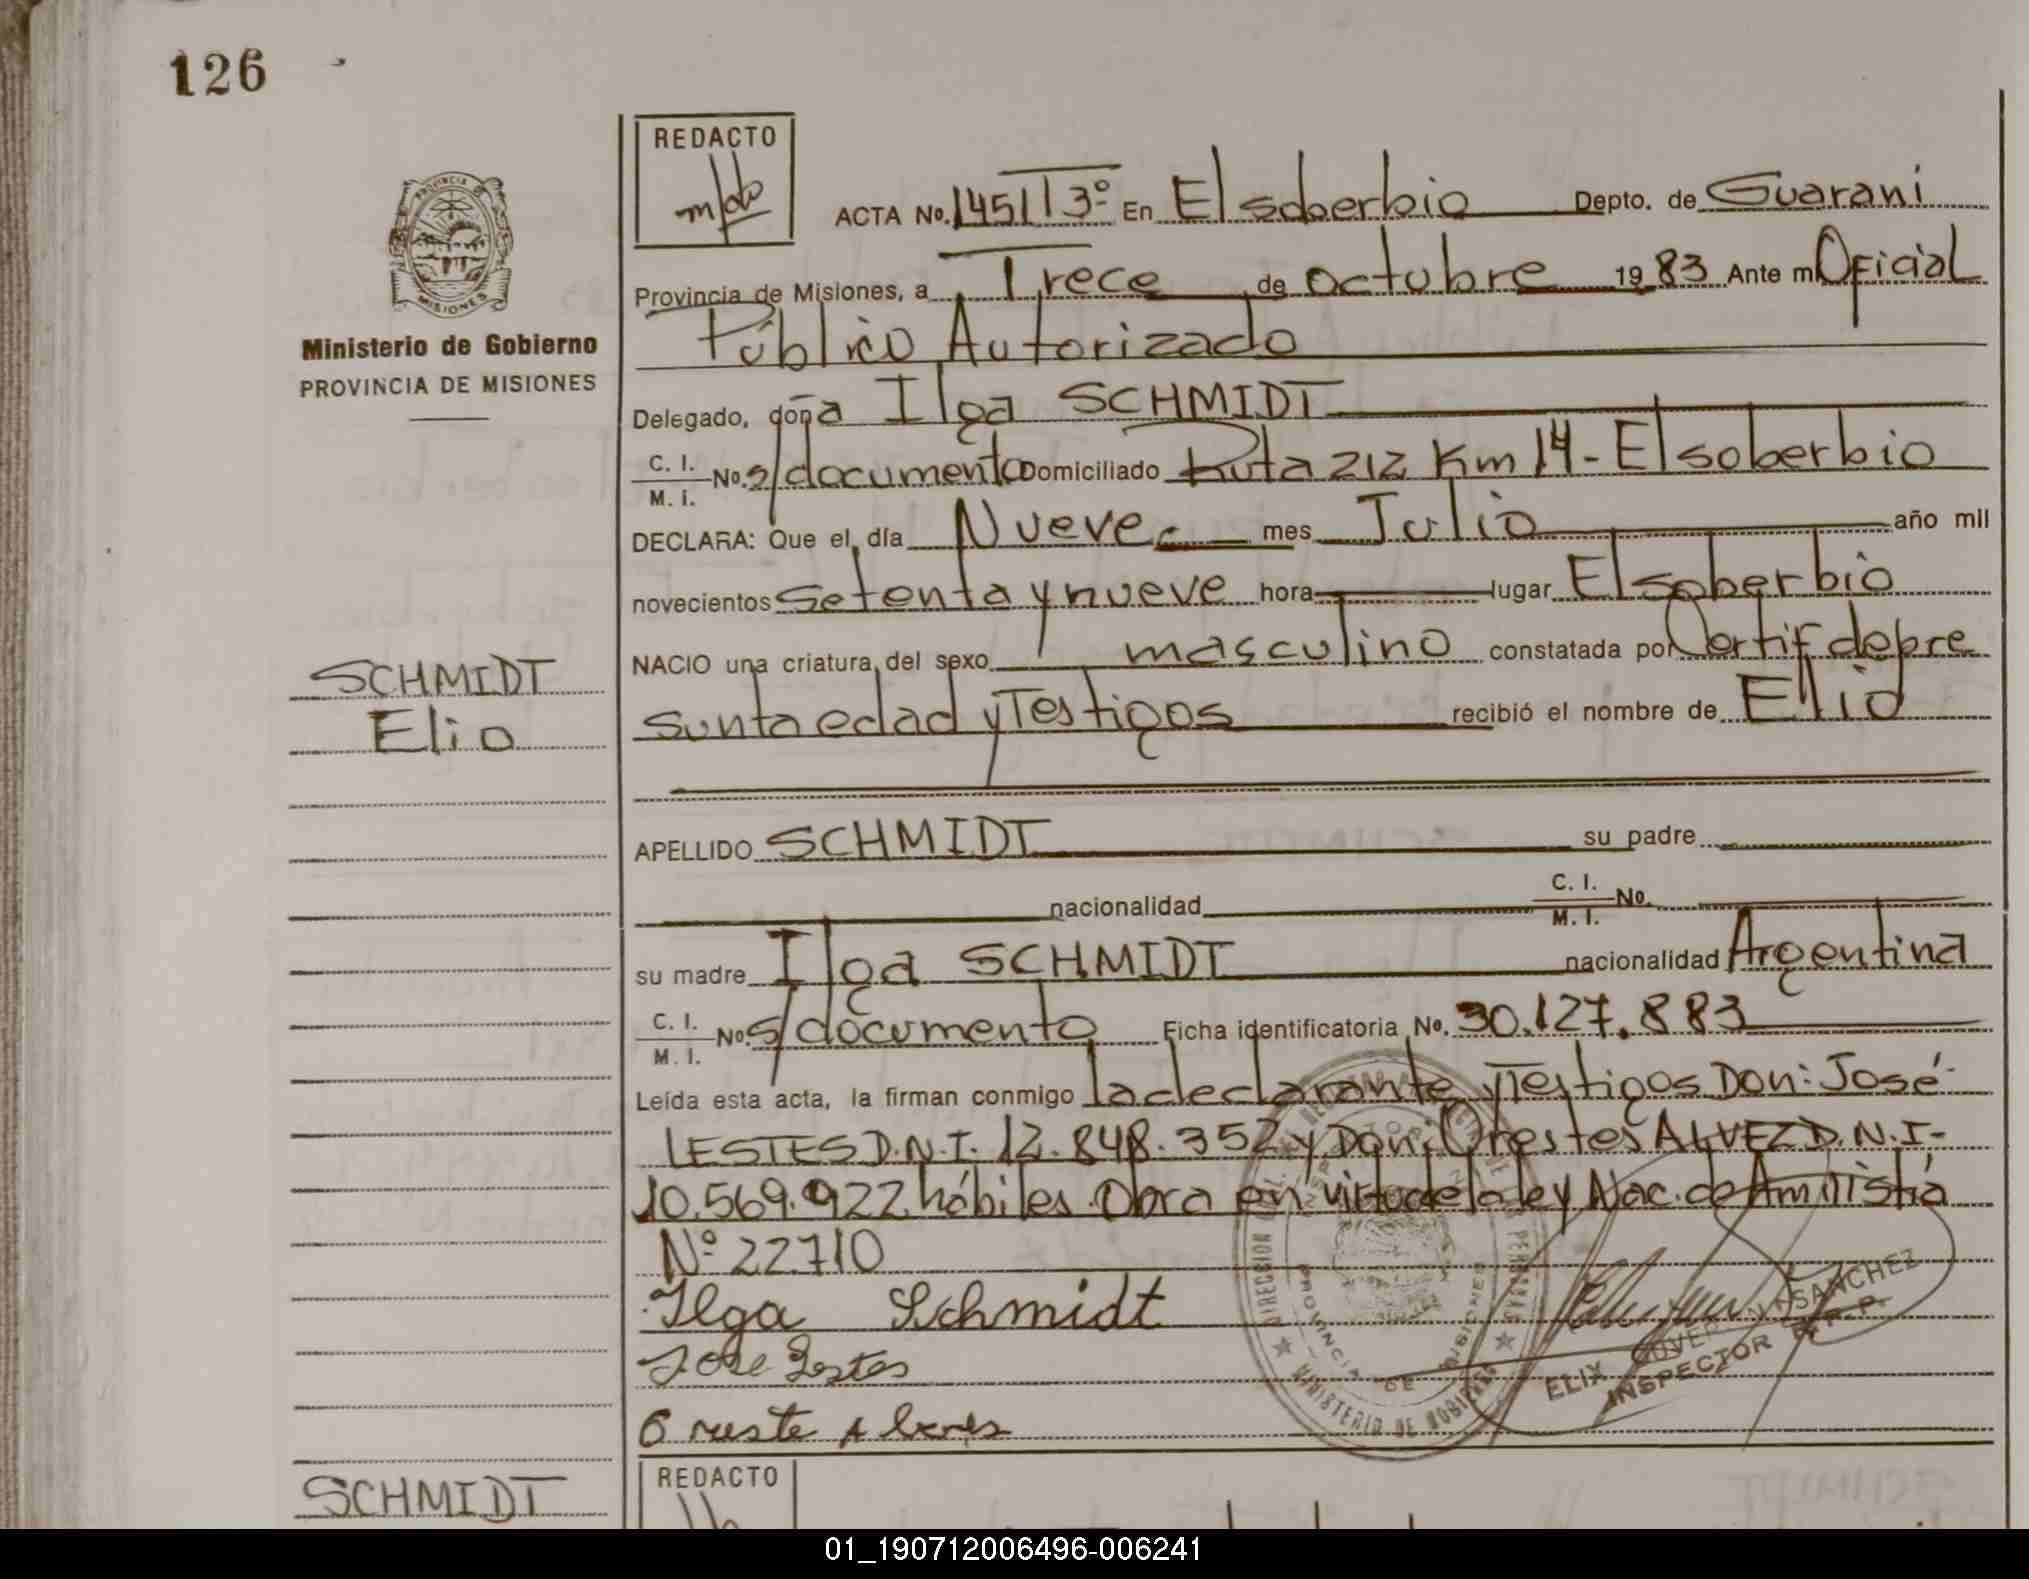 126
REDACTO
ACTA No. 1451 T 3º En El soberbio Depto. de Guarani
Provincia de Misiones, a Trece de octubre 19 83 Ante mi Oficial
Público Autorizado
PROVINCIA DE MISIONES
Ministerio de Gobierno
PROVINCIA DE MISIONES
Delegado, doña Ilga SCHMIDT
C. I.
M. I. No. s/documento Domiciliado Ruta 212 Km 14 - El soberbio
DECLARA: Que el día Nueve mes Julio año mil
novecientos setenta y nueve hora lugar El soberbio
NACIO una criatura del sexo masculino constatada por Certif de pre
sunta edad y Testigos recibió el nombre de Elio
SCHMIDT
Elio
APELLIDO SCHMIDT su padre
nacionalidad C. I. M. I. No.
su madre Ilga SCHMIDT nacionalidad Argentina
C. I.
M. I. No. s/documento Ficha identificatoria No. 30.127.883
Leída esta acta, la firman conmigo la declarante y Testigos Don: José
LESTES D.N.I. 12.848.352 y Don: Orestes ALVEZ D.N.I-
10.569.922 hábiles. Obra en virtud de la ley Nac. de Amnistía
Nº 22710
Ilga Schmidt
Jose Lestes
Oreste Alves
MINISTERIO DE GOBIERNO
PROVINCIA DE MISIONES
ELIX SANCHEZ
INSPECTOR R.P.
SCHMIDT
REDACTO
01_190712006496-006241